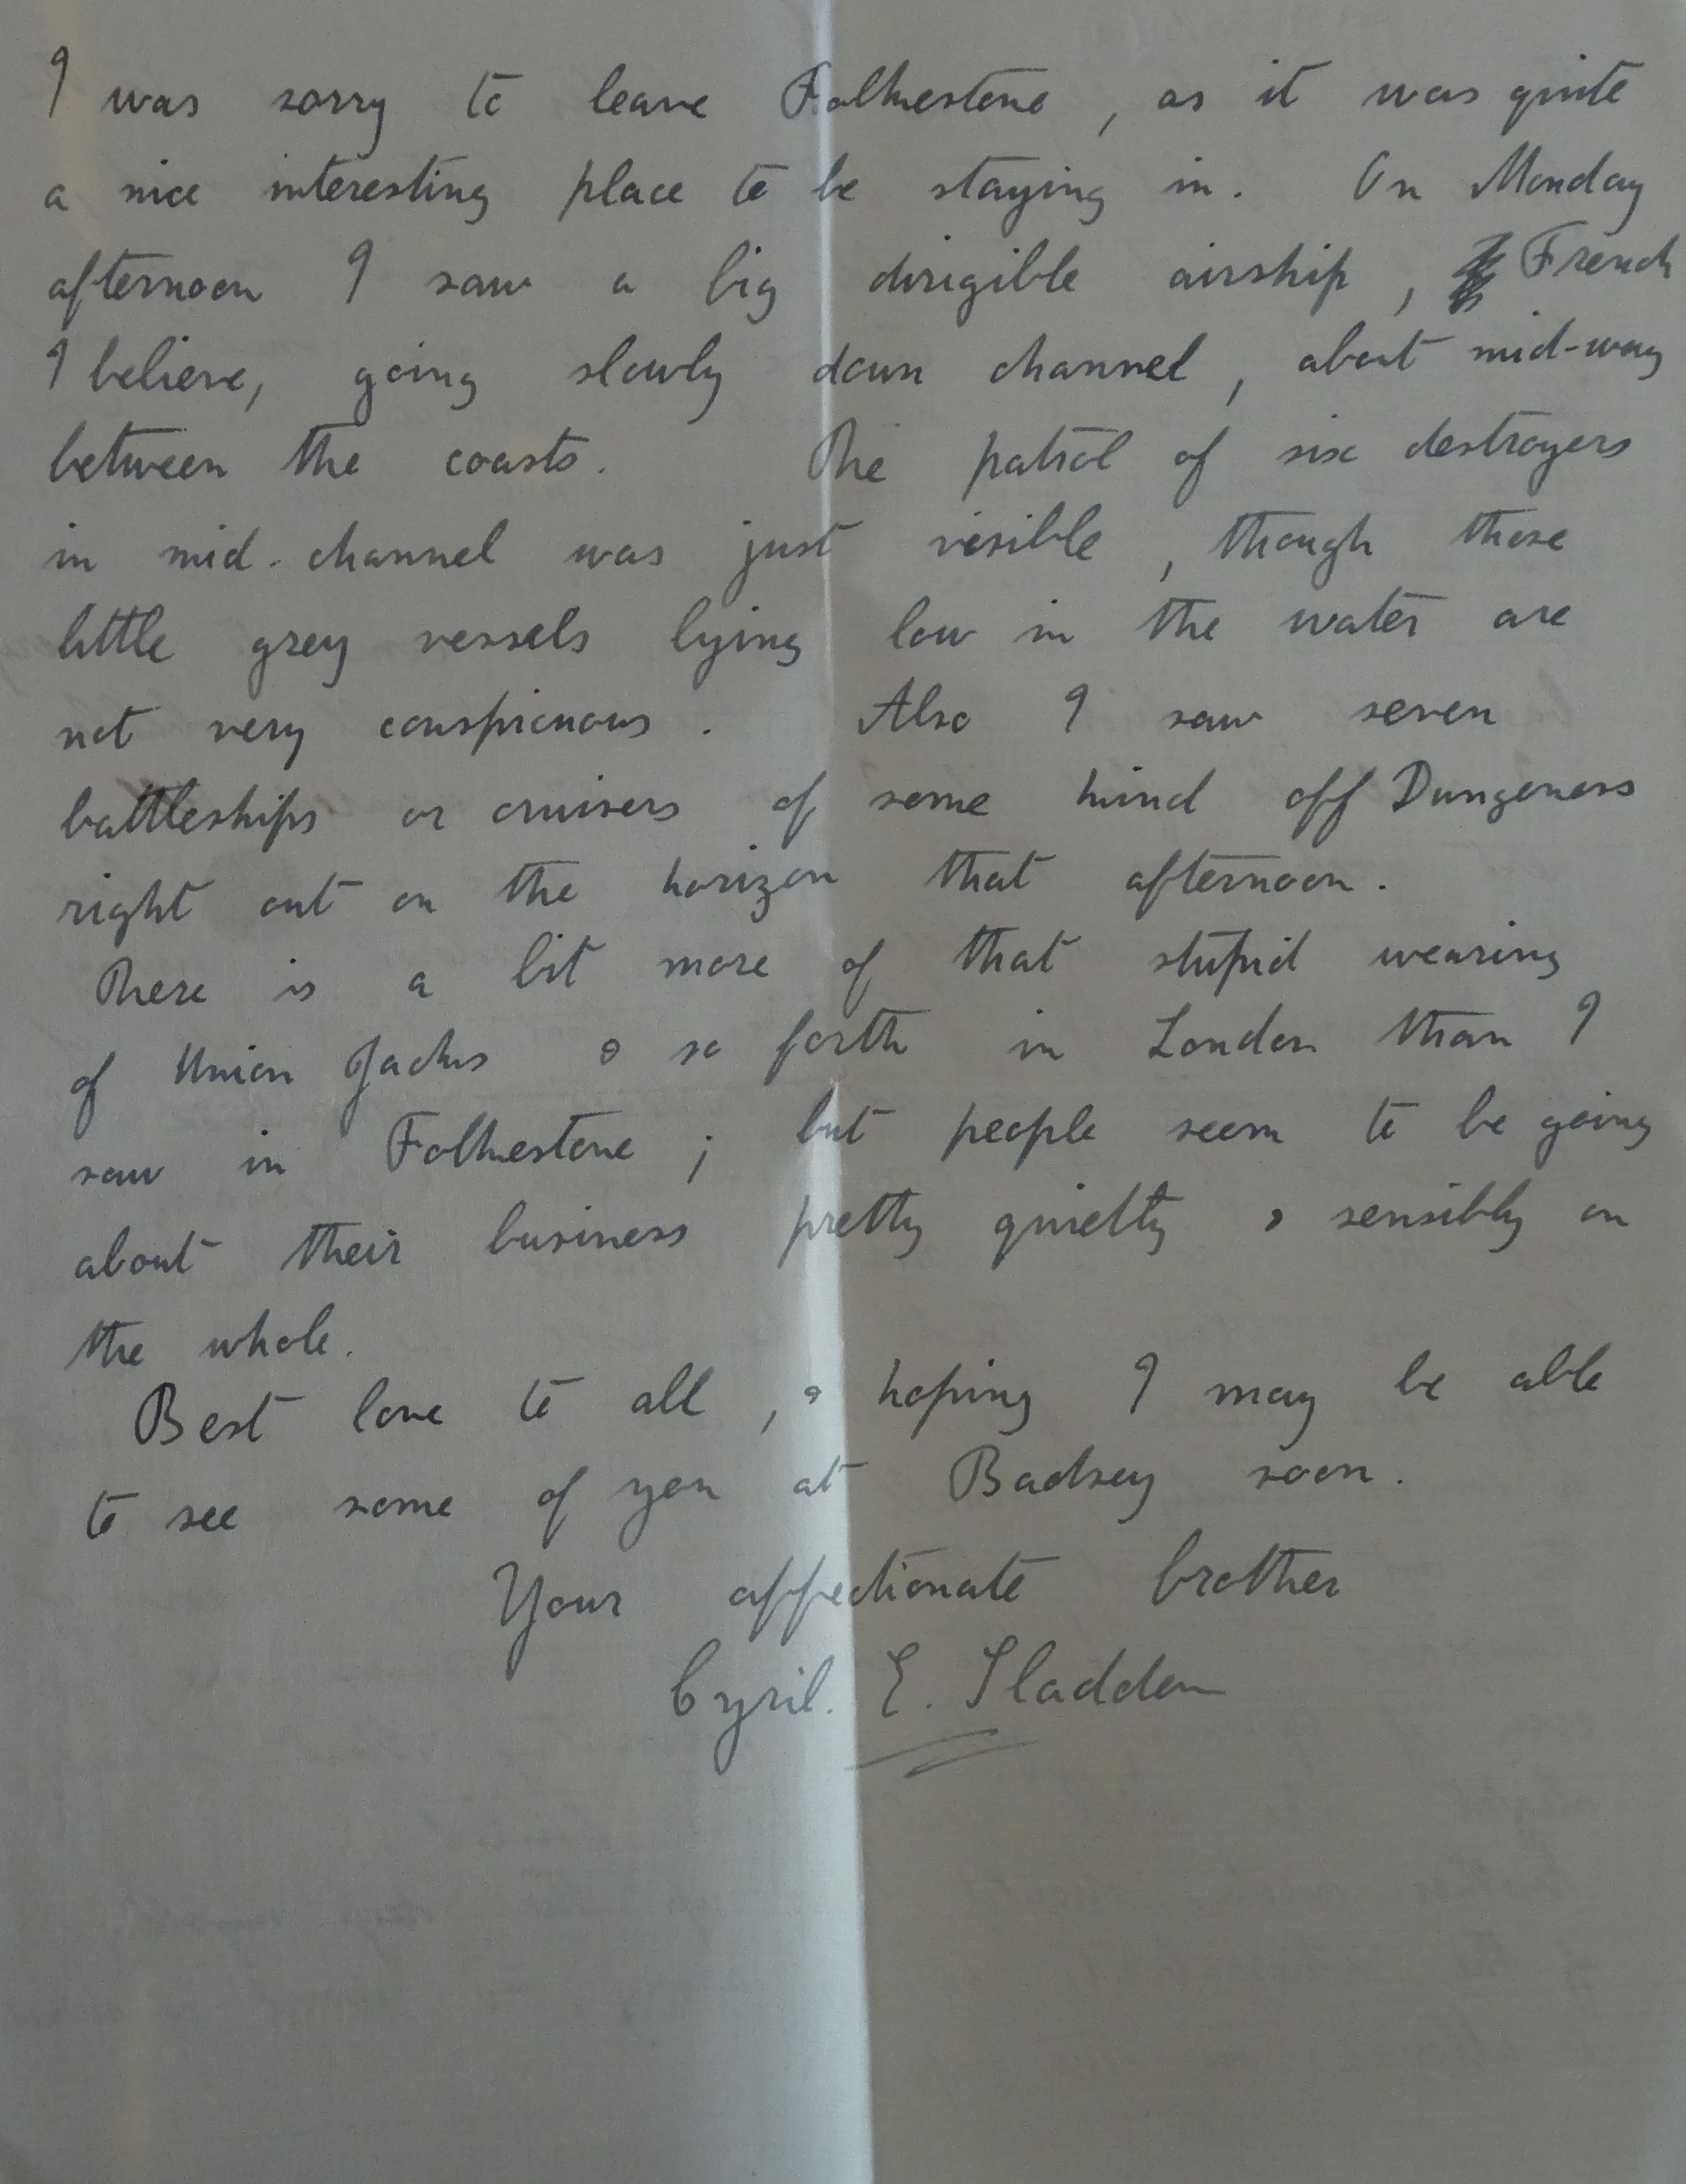 I was sorry to leave Folkestone, as it was quite
a nice interesting place to be staying in. On Monday
afternoon I saw a big dirigible airship, French
I believe, going slowly down channel, about mid-way
between the coasts. The patrol of six destroyers
in mid-channel was just visible, though those
little grey vessels lying low in the water are
not very conspicuous. Also I saw seven
battleships or cruisers of some kind off Dungeness
right out on the horizon that afternoon.
There is a bit more of that stupid wearing
of Union Jacks & so forth in London than I
saw in Folkestone; but people seem to be going
about their business pretty quietly & sensibly on
the whole.
Best love to all, & hoping I may be able
to see some of you at Badsey soon.
Your affectionate brother
Cyril. E. Sladden